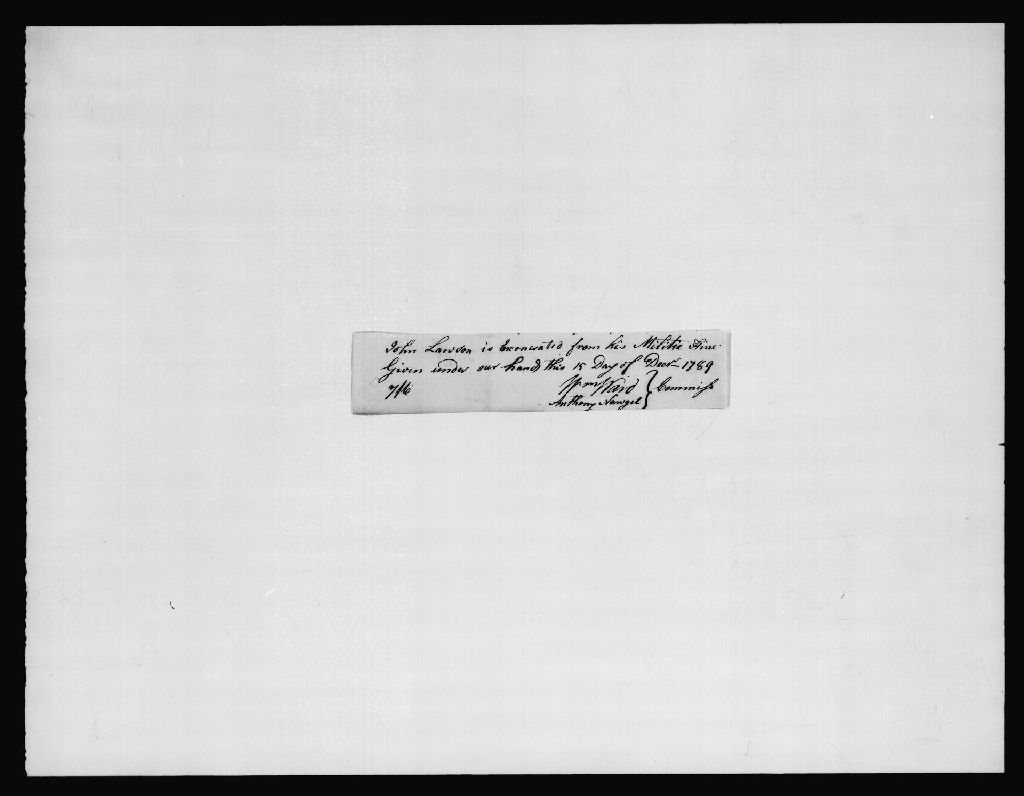 John Lawson is Exonerated from his Militia Fine
Given under our hands this 15 Day of Decr 1789
7/6 Wm Ward } Commiss
Anthony Nawgel